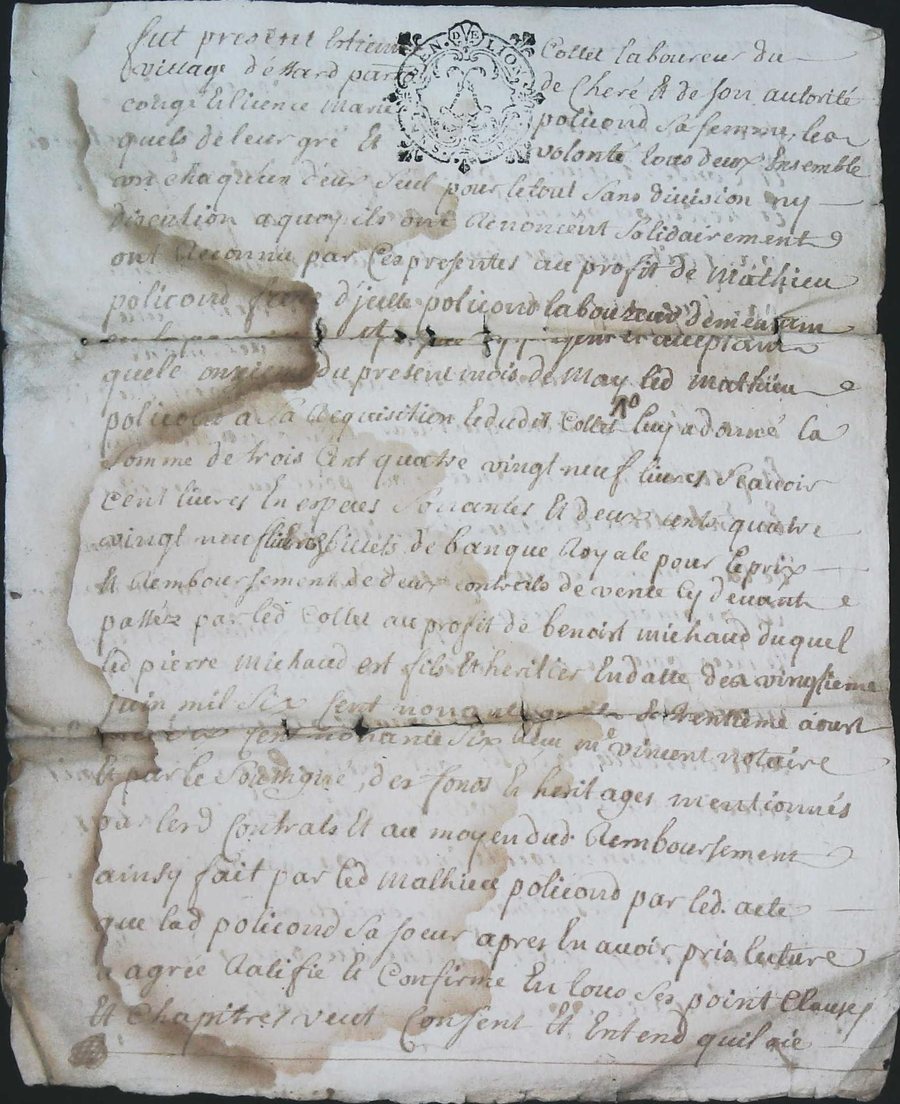 GEN. DE LION
fut present Estienne Collet laboureur du
village d'essard par de Cheré et de son autorité
congé et lience Marie policond sa femme, les
quels de leur gré et volonté tous deux Ensemble
un chaquun d'eux seul pour le tout sans division ny
discution a quoy ils ont Renoncent solidairement
ont Reconnu par Ces presentes au profit de Mathieu
policond frere d'jcelle policond laboureur demeurant
et acceptant
quele onzieme du present mois de May led Mathieu
policond a sa Requisition le dudit Collet luy a donné la
somme de trois Cent quatre vingt neuf livres sçavoir
Cent livres En especes sonantes Et deux cents quatre
vingt neuf livres billets de banque Royale pour le prix
Et Remboursement de deux contrats de vente cy devant
passéz par led Collet au profit de benoist Michaud duquel
led pierre Michaud est fils Et heritier En datte des vingtieme
juin mil six sent nonante Et trentieme aoust
six sent nonante six deux me vincent notaire
Et par le Soussigné, des fonds Et heritages mentionnés
par lesd Contrats Et au moyen dud Remboursement
ainsy fait par led Mathieu policond par led. acte
que lad policond sa soeur apres En avoir pris lecture
a agréé Ratifié Et Confirmé En tous ses point Clauses
Et Chapitres veut Consent Et Entend quil aie